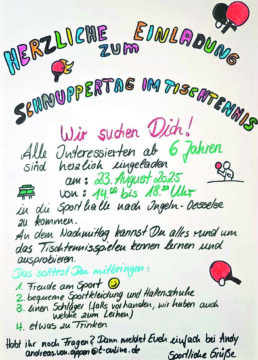 HERZLICHE EINLADUNG
zum
SCHNUPPERTAG IM TISCHTENNIS
Wir suchen Dich!
Alle Interessierten ab 6 Jahren
sind herzlich eingeladen
am: 23. August 2025
von: 14.00 bis 18.00 Uhr
in die Sporthalle nach Ingeln-Oesselse
zu kommen.
An dem Nachmittag kannst Du alles rund um
das Tischtennisspielen kennen lernen und
ausprobieren.
Das solltest Du mitbringen:
1. Freude am Sport
2. bequeme Sportkleidung und Hallenschuhe
3. einen Schläger (falls vorhanden, wir haben auch
welche zum Leihen)
4. etwas zu Trinken
Habt ihr noch Fragen? Dann meldet Euch einfach bei Andy
Sportliche Grüße